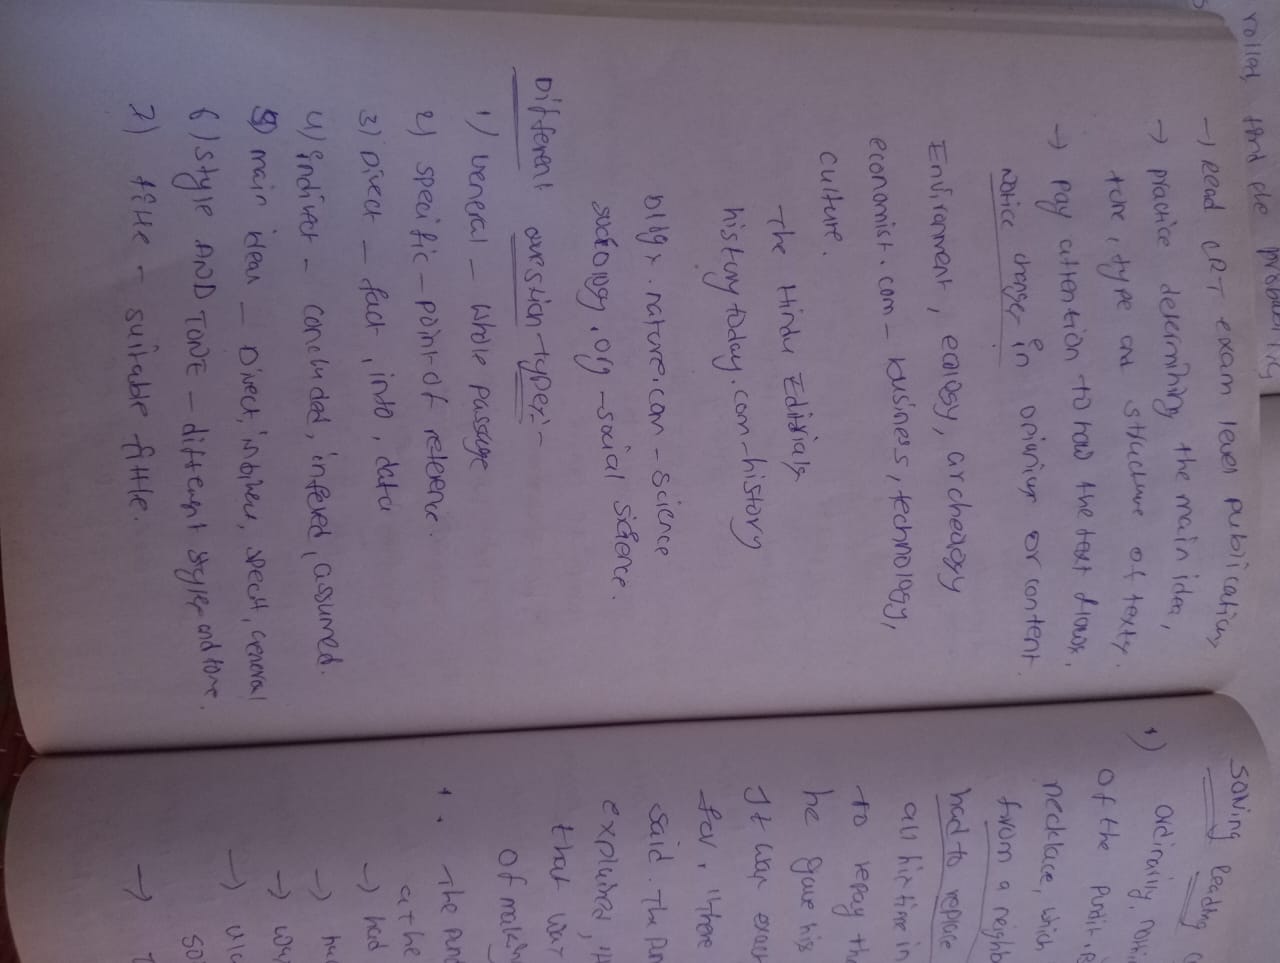 roller, find the probability
→ Read CRT exam level publications
→ practice determining the main idea,
tone, type and structure of texts.
→ Pay attention to how the text flows.
Notice changes in opinions or content
Environment, ecology, archeaogy
economist.com - business, technology,
culture.
The Hindu Editirials
historytoday.com - history
bllgs.nature.com - science
sociology.org - social science.
Different question types:-
1) General - whole passage
2) specific - point of reference.
3) Direct - fact, info, data
4) Indirect - concluded, infered, assumed.
5) main idea - Direct, specit, General
6) Style AND TONE - different styles and tone.
7) title - suitable tittle.
Solving Reading
1) Ordinarily,
of the pundit
necklace, which
from a neighb
had to replace
all his time in
to repay the
he gave his
It was exact
for, "there
said. The pun
explained, "H
that was
of making
The pund
at the
→ had
→ ha
→ was
→
so
→